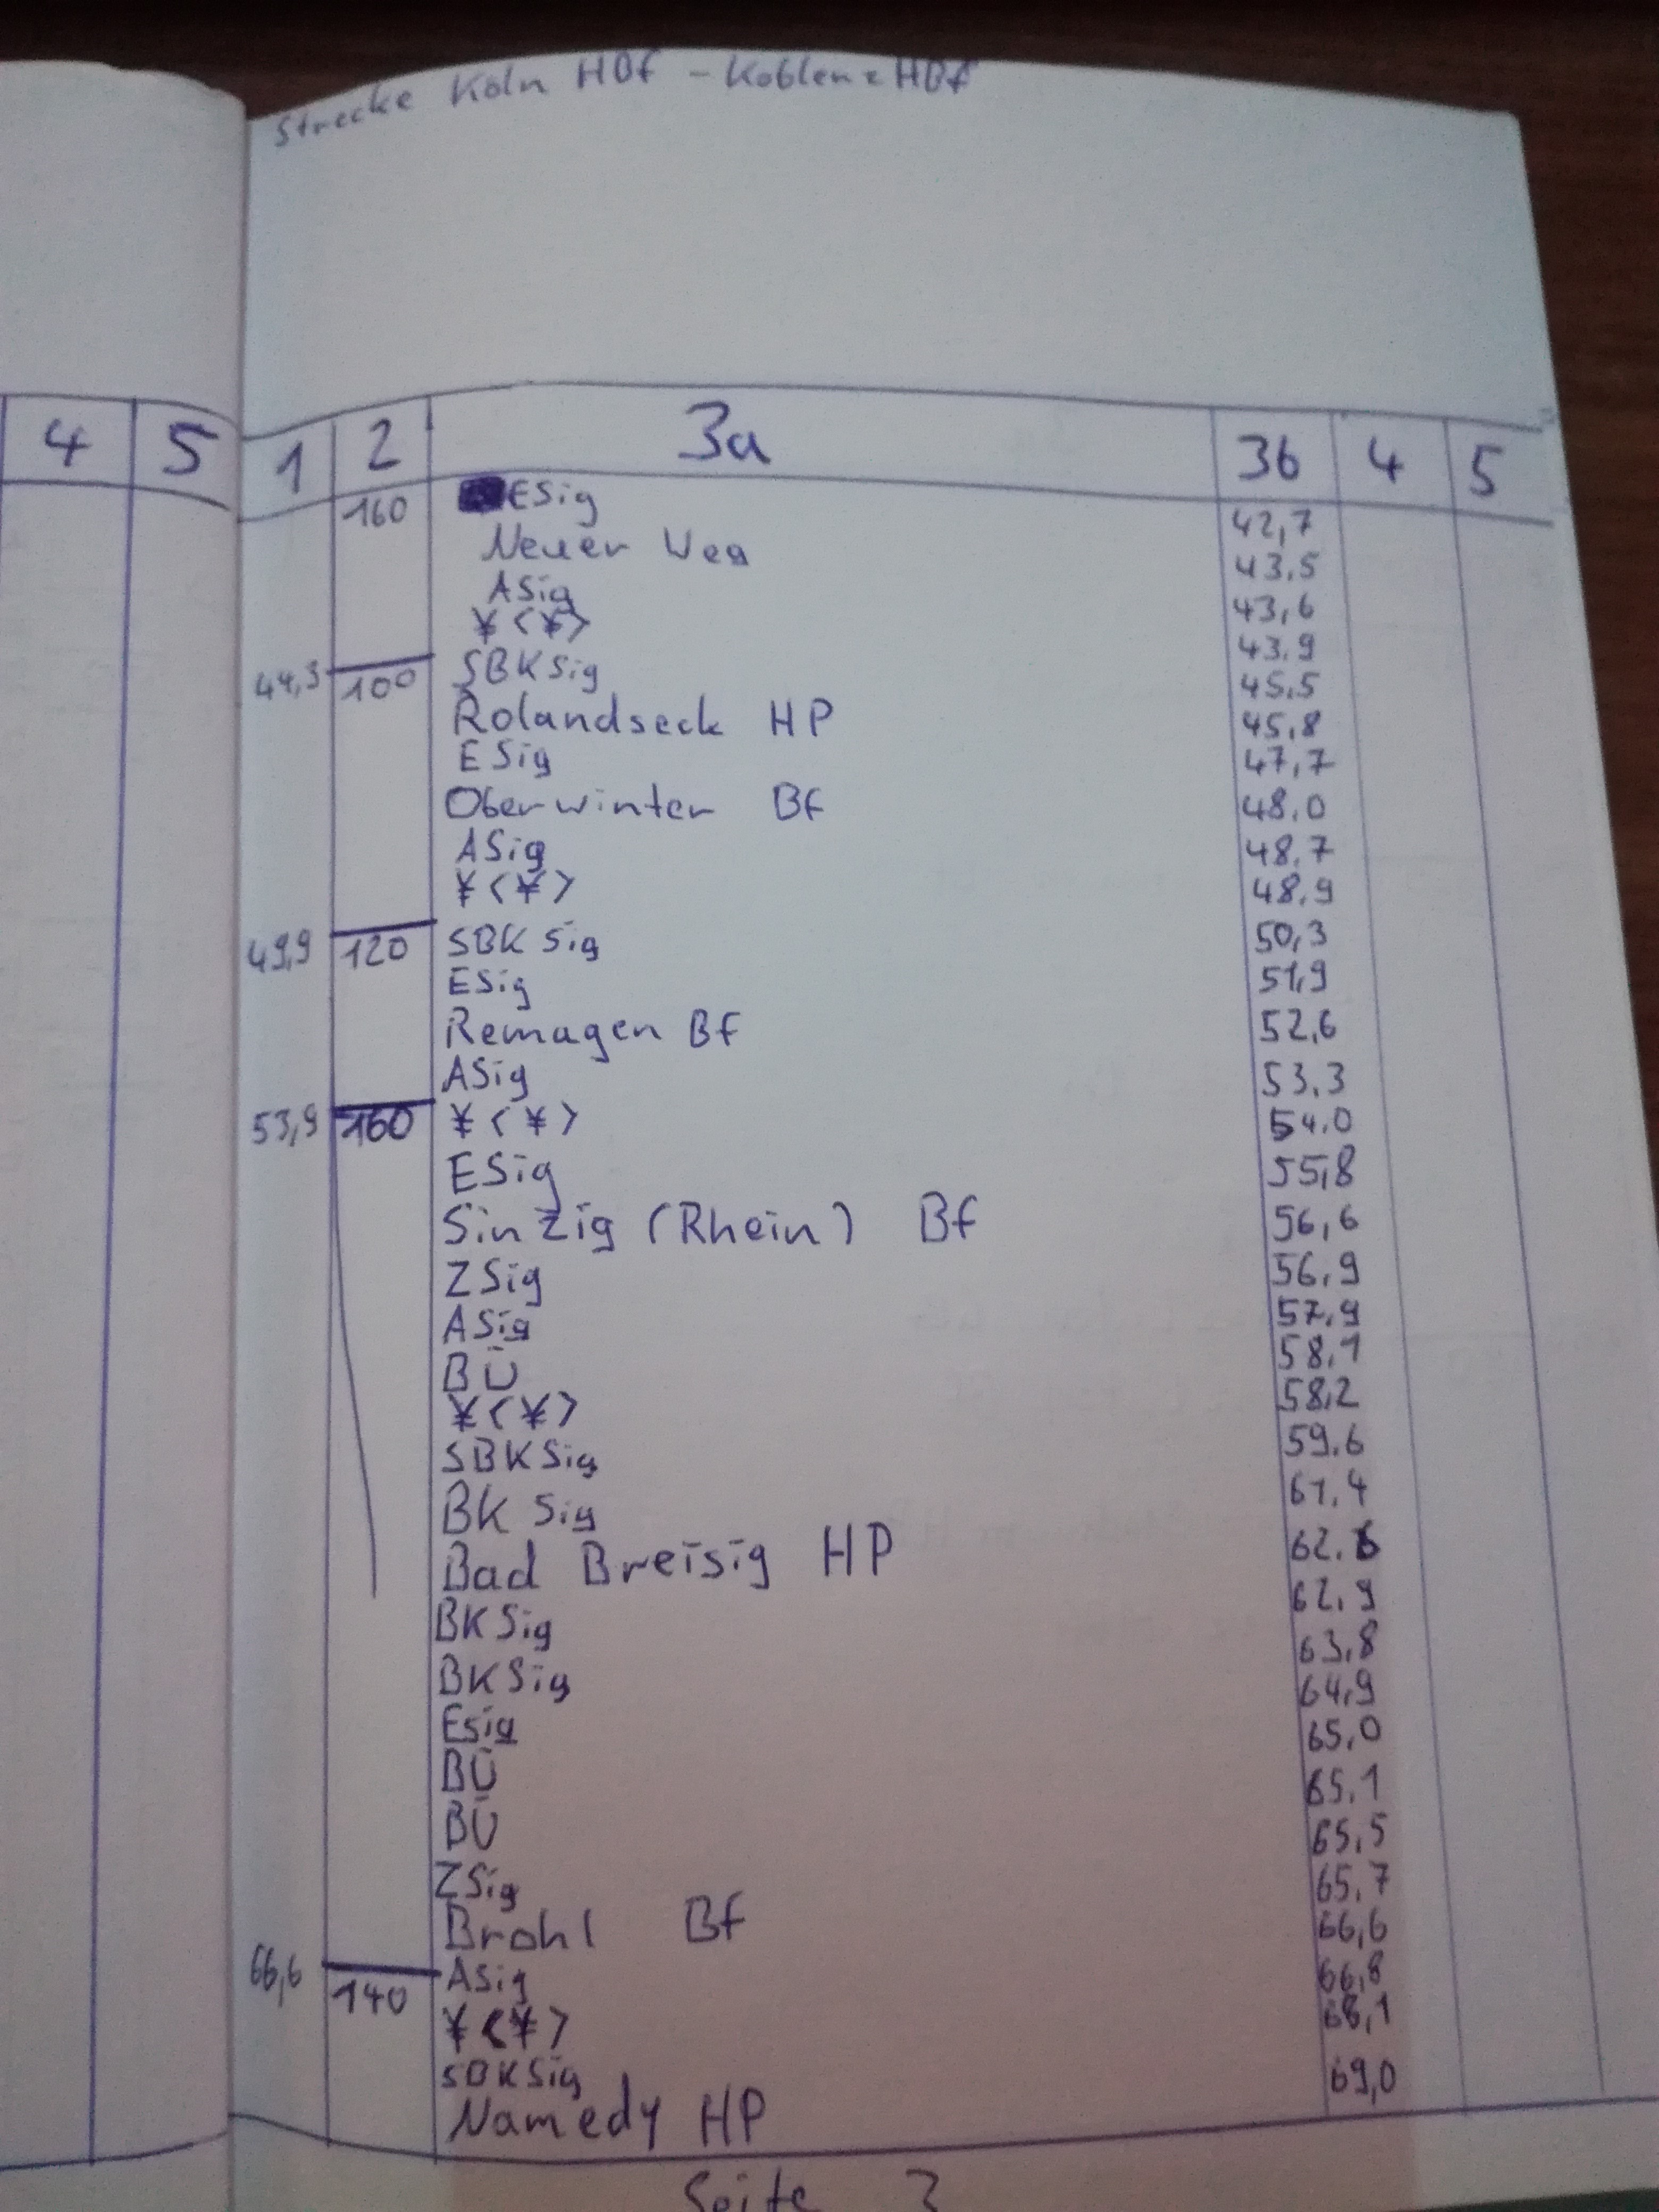 Strecke Köln HBf - Koblenz HBf
4 5
1 2 3a 3b 4 5
160 ESig 42,7
Neuer Weg 43.5
ASig 43,6
¥ <¥> 43.9
44,3 100 SBKSig 45.5
Rolandseck HP 45,8
ESig 47,7
Oberwinter Bf 48.0
ASig 48.7
¥ <¥> 48,9
49,9 120 SBK Sig 50,3
ESig 51,9
Remagen Bf 52,6
ASig 53.3
53,9 160 ¥ <¥> 54.0
ESig 55,8
Sinzig (Rhein) Bf 56,6
ZSig 56,9
ASig 57.9
BÜ 58,1
¥ <¥> 58,2
SBKSig 59.6
BK Sig 61.4
Bad Breisig HP 62.6
BKSig 62,9
BKSig 63,8
Esig 64,9
BÜ 65,0
BÜ 65.1
ZSig 65,5
Brohl Bf 65,7
66,6 140 ASig 66,6
¥ <¥> 66,8
SBKSig 68,1
Namedy HP 69,0
Seite 3